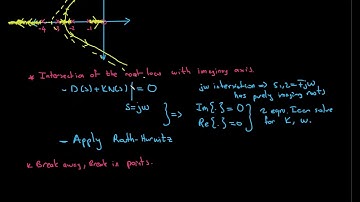 -4 -3 -2 -1
* Intersection of the root locus with imaginary axis.
- D(s)+KN(s)| = 0
s=jω
jω intersection => s1,2=∓jω
has purely imaginary roots
=> Im{.} = 0
Re{.} = 0
2 eqn, I can solve
for K, ω.
- Apply Routh-Hurwitz
* Break away, Break in points.